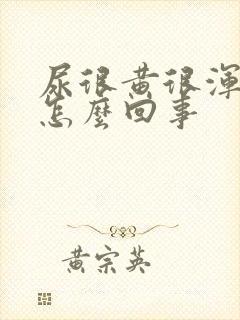 尿很黄很渾
怎麼回事
黄宗英